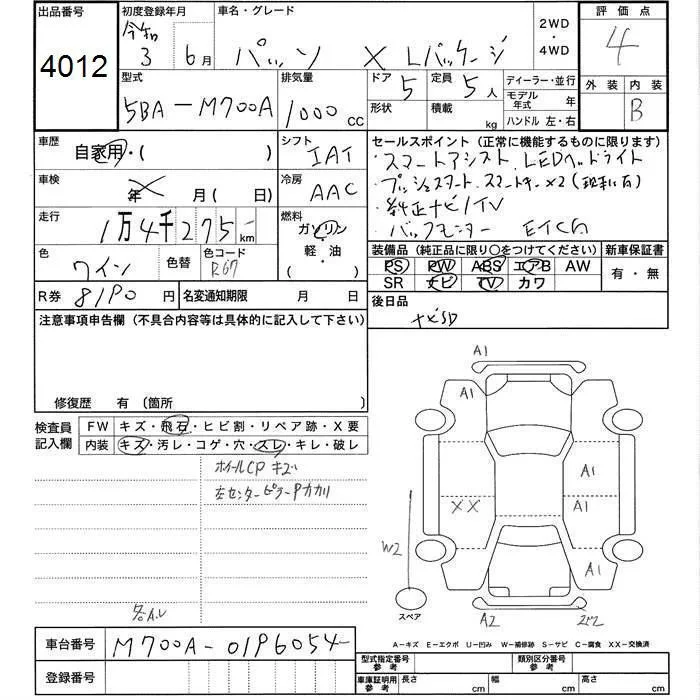 出品番号 初度登録年月 車名・グレード 2WD・4WD 評価点
4012 令和 3 6月 パッソ X Lパッケージ 4
型式 排気量 ドア 5 定員 5人 ディーラー・並行 外装 内装
5BA-M700A 1000cc 形状 積載 kg モデル年式 年 ハンドル 左・右 B
車歴 自家用・( ) シフト IAT セールスポイント(正常に機能するものに限ります)
・スマートアシスト LEDヘッドライト
車検 年 月(日) 冷房 AAC ・プッシュスタート スマートキー×2
・純正ナビ/TV
走行 1万4千275km 燃料 ガソリン 軽・油 ( ) バックモニター
色 ワイン 色替 色コード R67 装備品(純正品に限り〇をつけてください) 新車保証書
PS PW ABS エアB AW 有・無
SR ナビ TV カワ
R券 8190円 名変通知期限 月 日 後日品
ナビSD
注意事項申告欄(不具合内容等は具体的に記入して下さい)
修復歴 有 (箇所
検査員記入欄 FW キズ・飛石・ヒビ割・リペア跡・X要
内装 キズ・汚レ・コゲ・穴・スレ・キレ・破レ
ホイールCPキズ
左センターピラー
各A.U
A1
A1
A1
XX
A1
W2
A1
スペア
A2
A-キズ E-エクボ U-凹み W-補修跡 S-サビ C-腐食 XX-交換済
車台番号 M700A-0196054
登録番号
型式指定番号 参考 類別区分番号 参考
車庫証明用 参考 長さ cm 幅 cm 高さ cm